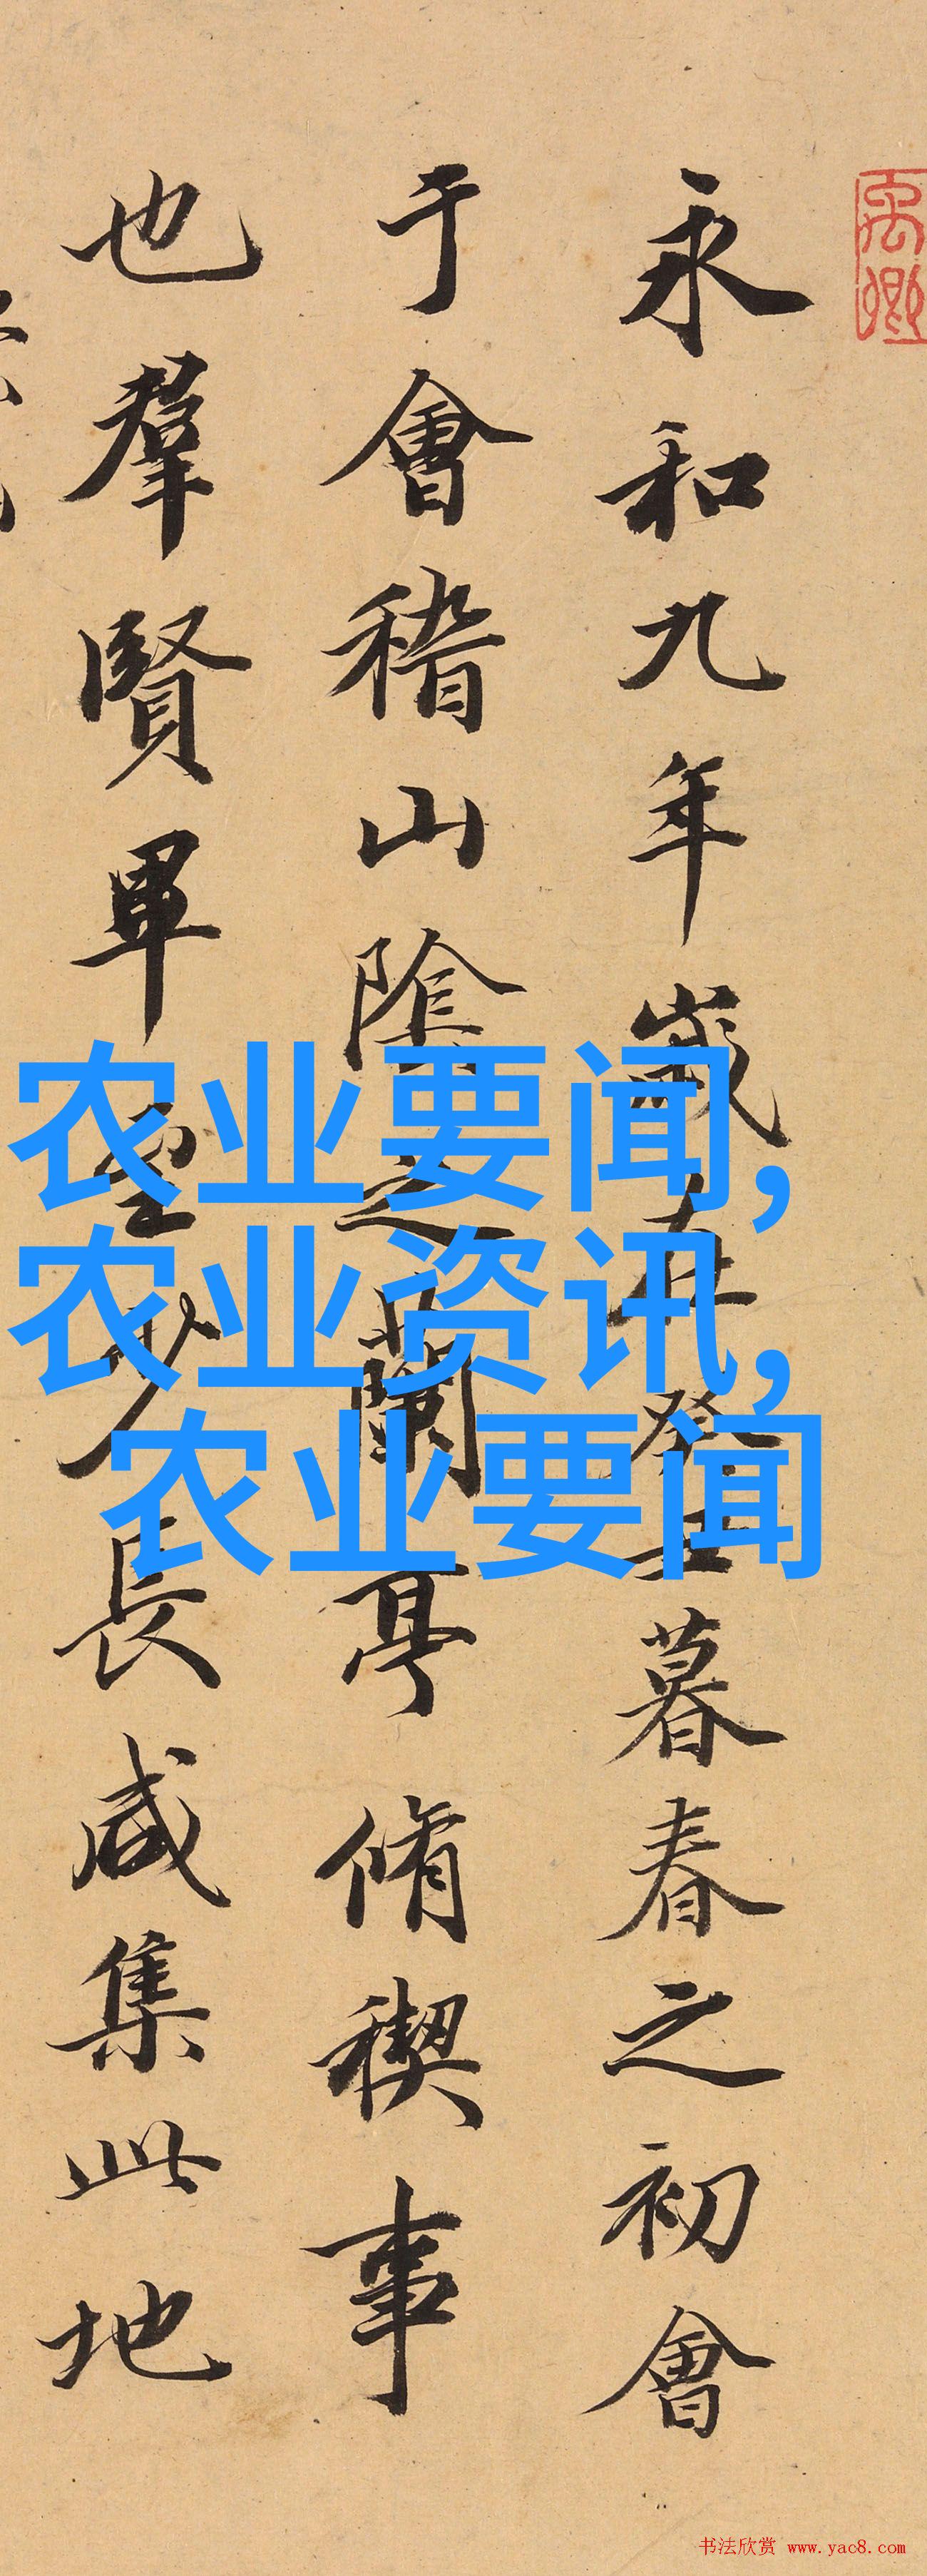 禹卿
永和九年歲在癸丑暮春之初會
于會稽山陰之蘭亭脩稧事
也羣賢畢至少長咸集此地
农业要闻,
农业资讯,
农业要闻
书法欣赏 www.yac8.com